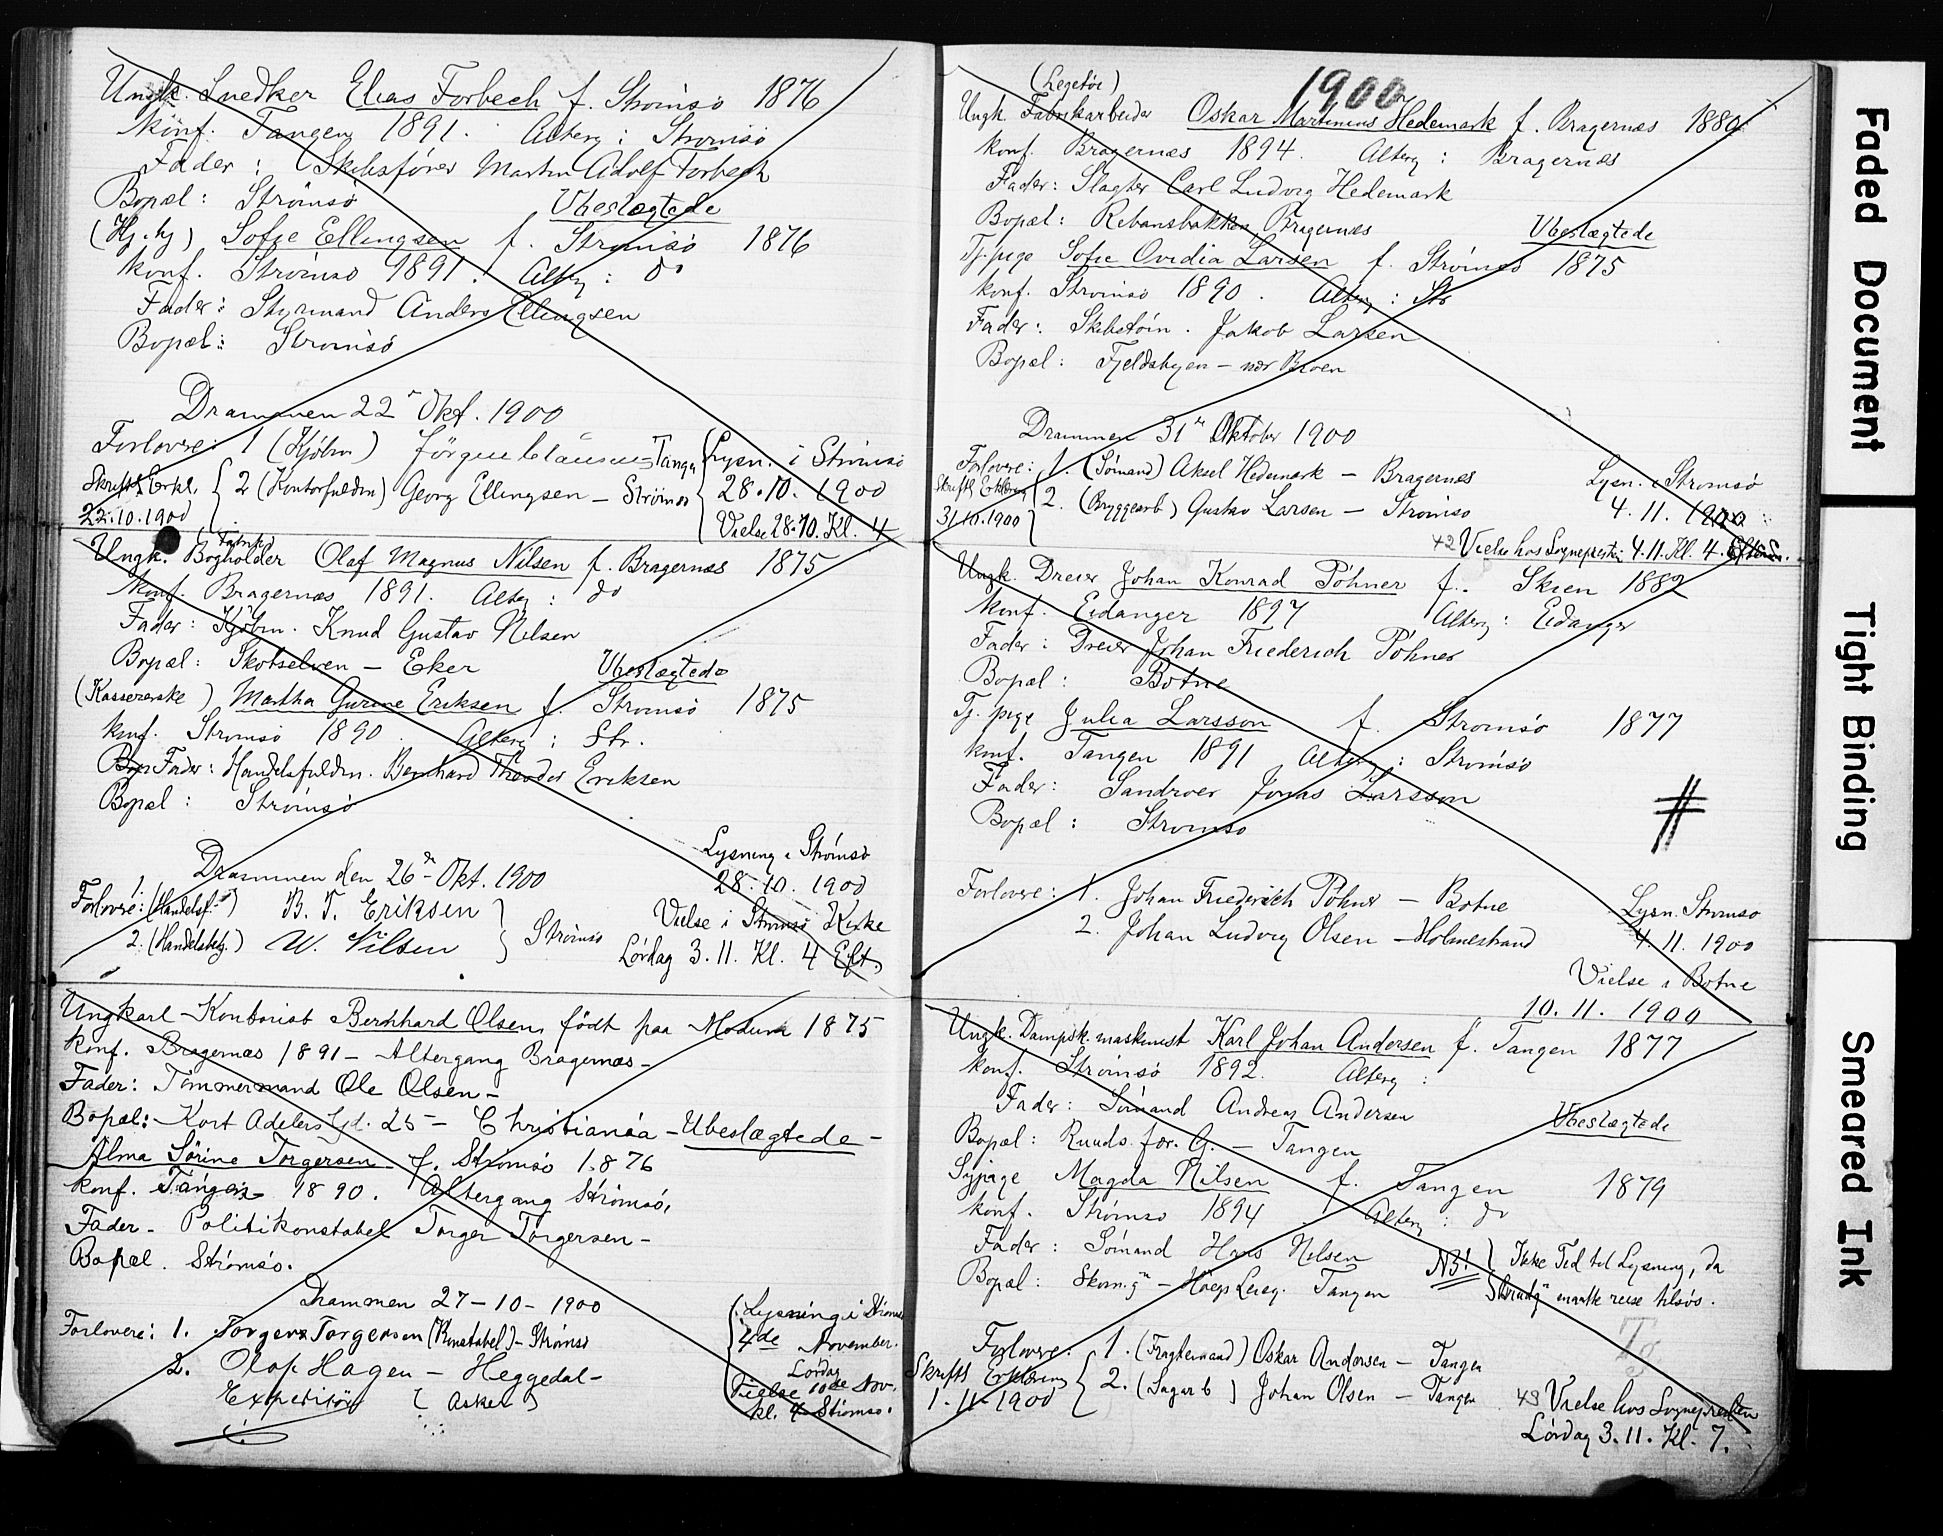 Ungk. Snedker Elias Forbech f. Strömsö 1876
konf. Tangen 1891. Alterg: Strömsö
Fader: Skibsförer Martin Adolf Forbech
Bopæl: Strömsö Ubeslægtede
(Hj. hj) Sofie Ellingsen f. Strömsö 1876
konf. Strömsö 1891. Alterg: do
Fader: Styrmand Anders Ellingsen
Bopæl: Strömsö
Drammen 22 Okt. 1900
Forlovere: 1 (Kjöbm) Jörgen Clausen Tangen Lysn. i Strömsö
Skriftl. Erkl. 2 (Kontorfuldm) Georg Ellingsen – Strömsö 28.10.1900
22.10.1900 Vielse 28.10. Kl. 4
Fabrik
Ungk. Bogholder Olaf Magnus Nilsen f. Bragernæs 1875
konf. Bragernæs 1891. Alterg: do
Fader: Kjöbm. Knud Gustav Nilsen
Bopæl: Skotselven – Eker Ubeslægtede
(Kassererske) Martha Gurine Eriksen f. Strömsö 1875
konf. Strömsö 1890. Alterg: Str.
Bop Fader: Handelsfuldm. Bernhard Theodor Eriksen
Bopæl: Strömsö
Lysning i Strömsö
Drammen den 26 Okt. 1900 28.10.1900
Forlovere: 1. (Handelsf.) B. T. Eriksen Vielse i Strömsö Kirke
2. (Handelsbetj.) W. Nilsen Strömsö Lördag 3.11. Kl. 4 Eft.
Ungkarl – Kontorist Bernhard Olsen, födt paa Modum 1875
konf. Bragernæs 1891 – Altergang Bragernæs –
Fader: Tömmermand Ole Olsen –
Bopæl: – Kort Adelers Gd. 25 – Christiania – Ubeslægtede –
Alma Sörine Torgersen f. Strömsö 1876
konf. Tangen 1890. Altergang Strömsö,
Fader – Politikonstabel Torger Torgersen –
Bopæl. Strömsö.
Drammen 27 – 10 – 1900 Lysning i Strömsö
Forlovere: 1. Torger Torgersen (Konstabel) – Strömsö 4de November.
2. Olaf Hagen – Heggedal – Lördag
Vielse 10de Nov.
Expeditör (Asker) kl. 4 Strömsö.
1900
(Legetöi)
Ungk. Fabrikarbeider Oskar Martinius Hedemark f. Bragernæs 1880
konf. Bragernæs 1894. Alterg: Bragernæs
Fader: Slagter Carl Ludvig Hedemark
Bopæl: Rebansbakken Bragernæs Ubeslægtede
Tj. pige Sofie Ovidia Larsen f. Strömsö 1875
konf. Strömsö 1890. Alterg: Str
Fader: Skibstöm. Jakob Larsen
Bopæl: Fjeldsbyen – nær Broen
Drammen 31 Oktober 1900
Forlovere: 1. (Sömand) Aksel Hedemark – Bragernæs Lysn. i Strömsö
Skriftl. Erklæring 2. (Bryggearb) Gustav Larsen – Strömsö 4.11.1900
31.10.1900
42 Vielse hos Sognepresten 4.11. Kl. 4.
Ungk. Dreier Johan Konrad Pöhner f. Skien 1882
konf. Eidanger 1897 Alterg: Eidanger
Fader: Dreier Johan Friederich Pöhner
Bopæl: Botne
Tj. pige Julia Larsson f. Strömsö 1877
konf. Tangen 1891 Alterg: Strömsö
Fader: Sandroer Jonas Larsson #
Bopæl: Strömsö
Forlovere: 1. Johan Friederich Pöhner – Botne Lysn. Strömsö
2. Johan Ludvig Olsen – Holmestrand 4.11.1900
Vielse i Botne
10.11.1900
Ungk. Dampsk. maskinist Karl Johan Andersen f. Tangen 1877
konf. Strömsö 1892. Alterg:
Fader: Sömand Andreas Andersen Ubeslægtede
Bopæl: Ruuds. for. G. – Tangen
Sypige Magda Nilsen f. Tangen 1879
konf. Strömsö 1894. Alterg: do
Fader: Sömand Hans Nilsen NB! Ikke Tid til Lysning, da
Bopæl: Tangen maatte reise tilsös.
Tg
Forlovere: 1. (Fragtemand) Oskar Andersen – Tangen
Skriftl. Erklæring 2. (Sagarb) Johan Olsen – Tangen 43 Vielse hos Sognepresten
1.11.1900 Lördag 3.11. Kl. 7.
Faded Document
Tight Binding
Smeared Ink